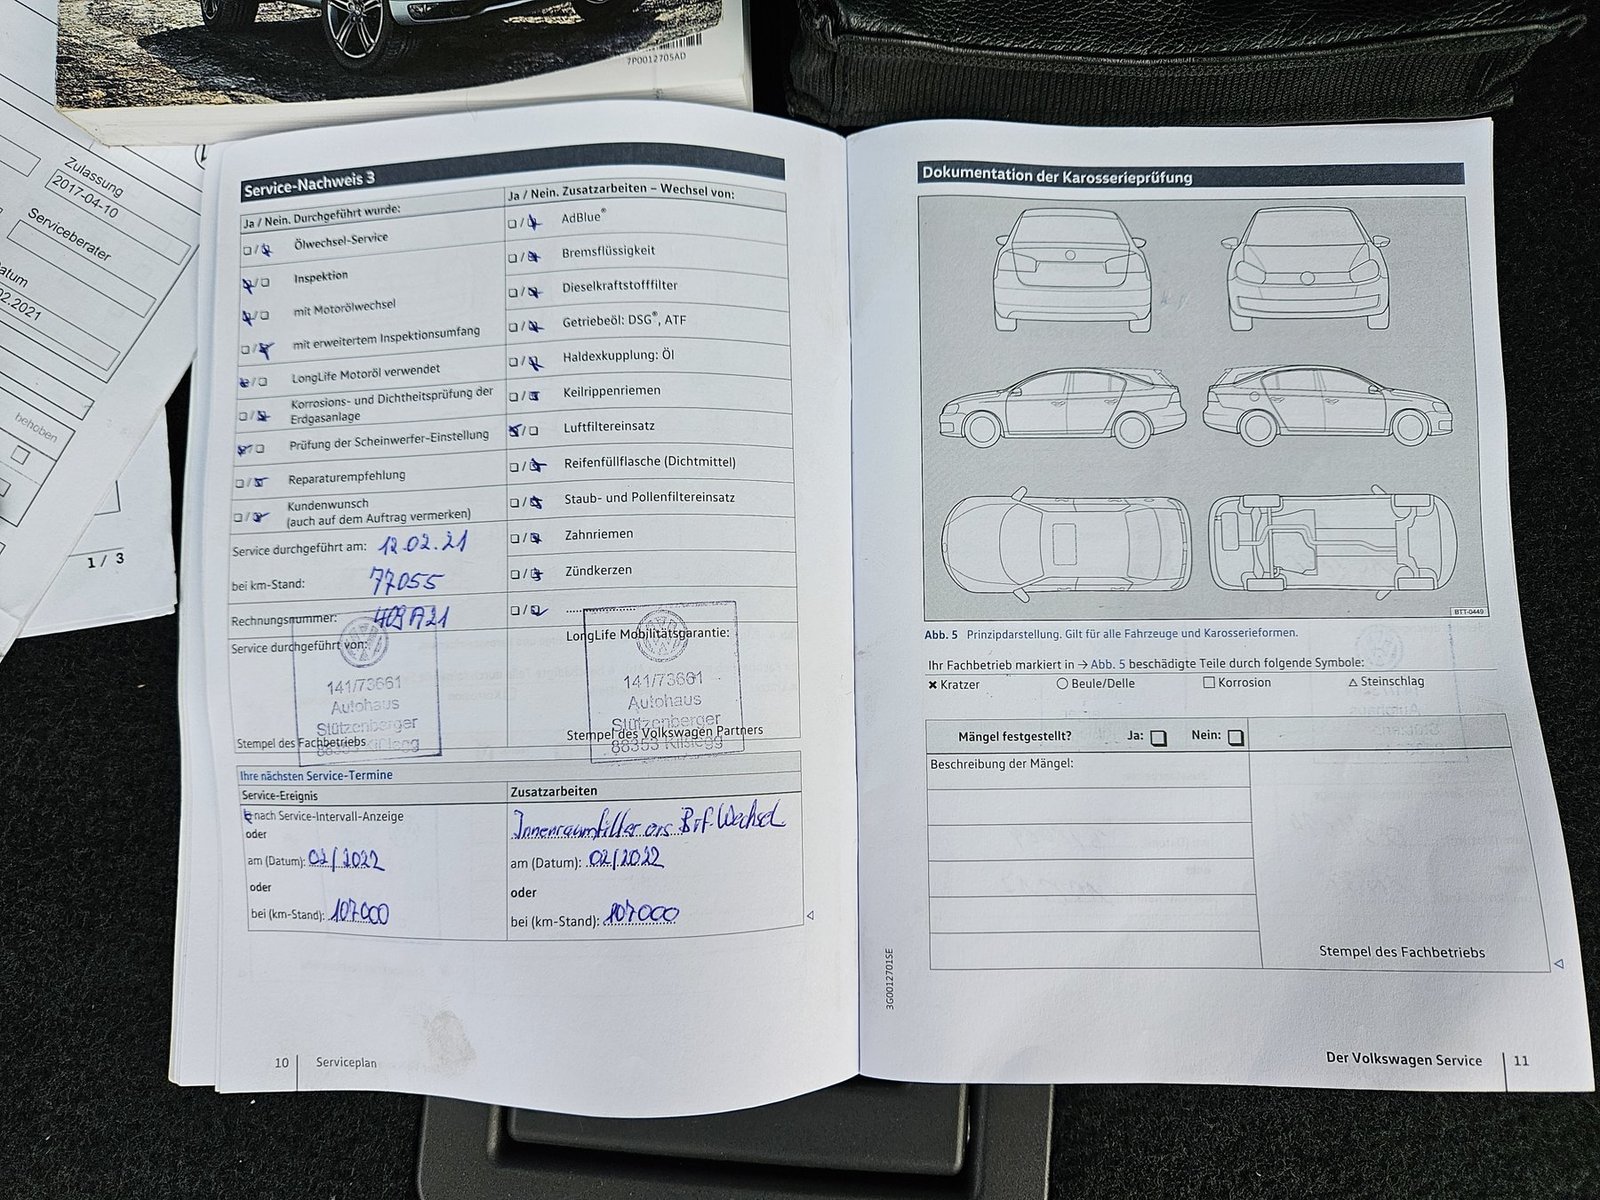 7P0012705AD
Zulassung
2017-04-10
Serviceberater
atum
02.2021
behoben
1 / 3
Service-Nachweis 3
Ja / Nein. Durchgeführt wurde:
Ölwechsel-Service
Inspektion
mit Motorölwechsel
mit erweitertem Inspektionsumfang
LongLife Motoröl verwendet
Korrosions- und Dichtheitsprüfung der
Erdgasanlage
Prüfung der Scheinwerfer-Einstellung
Reparaturempfehlung
Kundenwunsch
(auch auf dem Auftrag vermerken)
Service durchgeführt am: 12.02.21
bei km-Stand: 77055
Rechnungsnummer: 409A21
Service durchgeführt von:
141/73661
Autohaus
Stützenberger
88353 Kißlegg
Stempel des Fachbetriebs
Ja / Nein. Zusatzarbeiten – Wechsel von:
AdBlue®
Bremsflüssigkeit
Dieselkraftstofffilter
Getriebeöl: DSG®, ATF
Haldexkupplung: Öl
Keilrippenriemen
Luftfiltereinsatz
Reifenfüllflasche (Dichtmittel)
Staub- und Pollenfiltereinsatz
Zahnriemen
Zündkerzen
LongLife Mobilitätsgarantie:
141/73661
Autohaus
Stützenberger
88353 Kißlegg
Stempel des Volkswagen Partners
Ihre nächsten Service-Termine
Service-Ereignis
nach Service-Intervall-Anzeige
oder
am (Datum): 02/2022
oder
bei (km-Stand): 107000
Zusatzarbeiten
Innenraumfilter ers. Brf. Wechsel
am (Datum): 02/2022
oder
bei (km-Stand): 107000
10 Serviceplan
Dokumentation der Karosserieprüfung
BTT-0449
Abb. 5 Prinzipdarstellung. Gilt für alle Fahrzeuge und Karosserieformen.
Ihr Fachbetrieb markiert in → Abb. 5 beschädigte Teile durch folgende Symbole:
✖ Kratzer ○ Beule/Delle □ Korrosion △ Steinschlag
Mängel festgestellt? Ja: Nein:
Beschreibung der Mängel:
Stempel des Fachbetriebs
3G0012701SE
Der Volkswagen Service 11